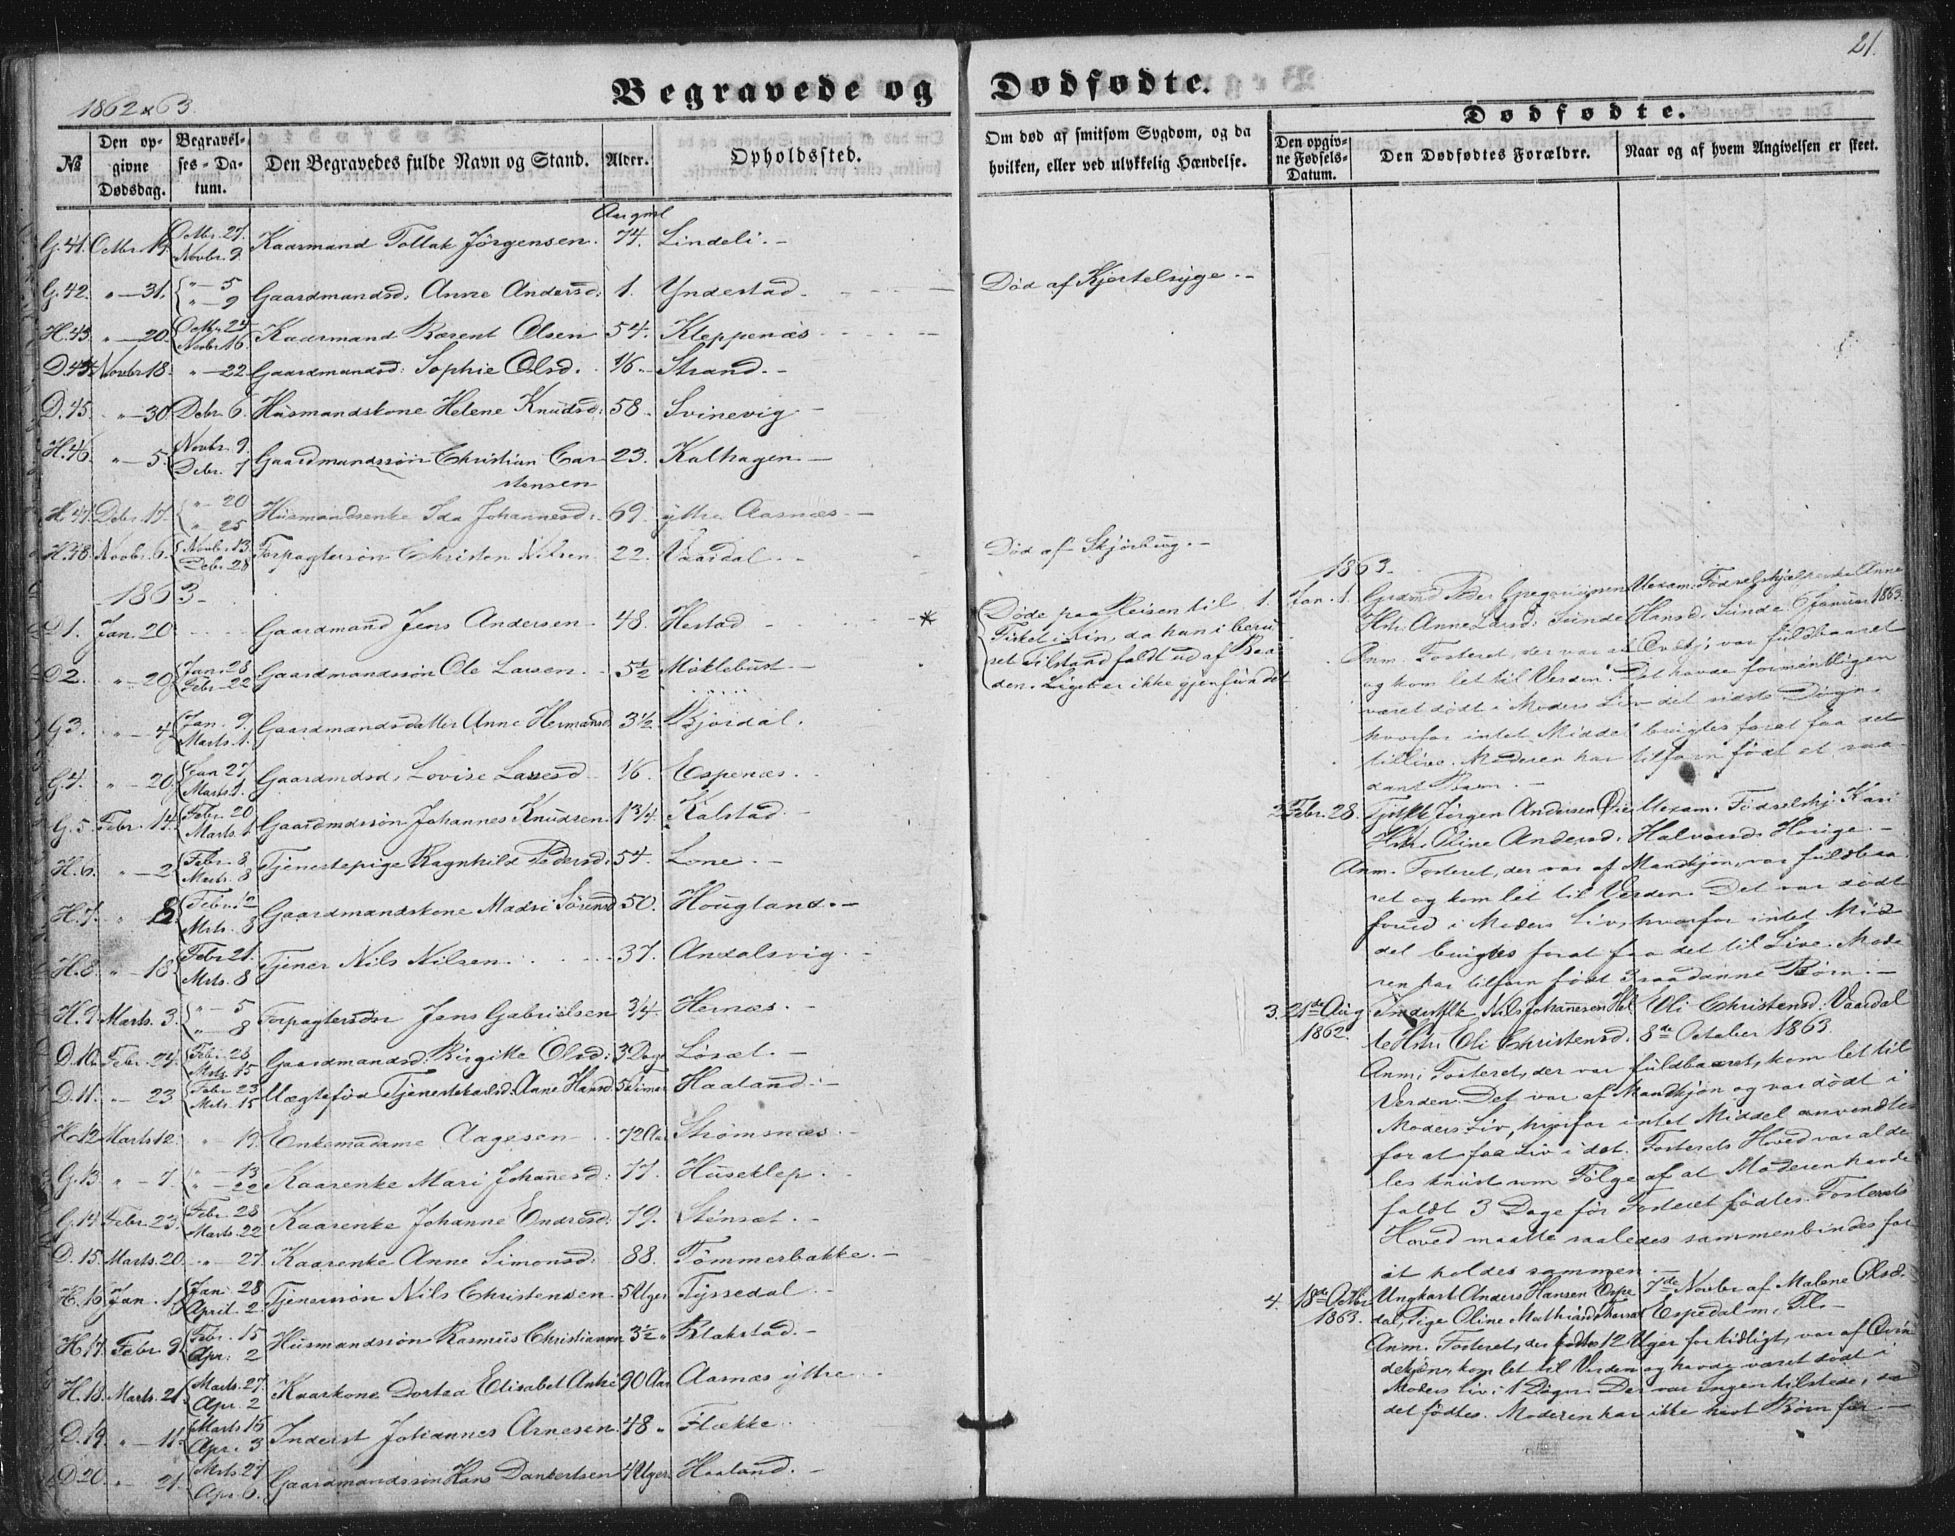 21.
1862 & 63.
Begravede og Dødfødte.
№
Den opgivne Dødsdag.
Begravelses-Datum.
Den Begravedes fulde Navn og Stand.
Alder.
Opholdssted.
Om død af smitsom Sygdom, og da hvilken, eller ved ulykkelig Hændelse.
Dødfødte.
Den opgivne Fødsels-Datum.
Den Dødfødtes Forældre.
Naar og af hvem Angivelsen er skeet.
G. 41. Octbr. 19. Octbr. 27. Novbr. 9. Kaarmand Tollak Jörgensen. 74. Lindeli. -
G. 42. " - 31. " - 5 " - 9 Gaardmandsd. Anne Andersd: 1. Yndestad. Död af Kjertelsyge. -
H. 43. " - 20. Octbr. 24 Novbr. 16. Kaarmand Bærent Olsen 54. Kleppenæs
D. 44. Novbr 18. " - 22 Gaardmandsd: Sophie Olsd. 16. Strand. -
D. 45. " - 30. Debr. 6. Husmandskone Helene Knudsd: 58. Svinevig -
H. 46. " - 5. Novbr. 9. Debr. 7 Gaardmandssön Christian Carstensen 23. Kalhagen. -
H. 47. Debr. 17. " 20 " 25 Husmandsenke Ida Johannesd: 69. ytre Aasnæs. -
H. 48. Novbr. 6. Novbr. 13. Debr. 28 Forpagtersön Christen Nilsen 22. Vaardal - Död af Skjörbug. -
1863.
D 1. Jan. 20 Gaardmand Jens Andersen 48. Hestad - *
Döde paa Reisen til
Fisket i Kin, da han i beru
set Tilstand faldt ud af Baa
den. Liget er ikke gjenfundet
D 2. " - 20 Jan. 28 Febr. 22 Gaardmandssön Ole Larsen 5½ Möklebust. -
G 3. " - 4 Jan. 9. Marts. 1. Gaardmandsdatter Anne Hermansd. 3½ Bjordal.
G. 4. " - 20 Jan 27 Marts 1. Gaardmdsd. Lovise Larsd 16. Espenæs.
G. 5. Febr. 14. Febr. 20 Marts. 1 Gaardmdssön Johannes Knudsen. 1 3/4. Kalstad.
H. 6. " - 2 Febr. 8. Marts. 8 Tjenestepige Ragnhild Pedersd: 54. Lone. -
H. 7. " 8 Febr. 12 Mrts. 8 Gaardmandskone Madsi Sörensd 50. Hougland. -
H. 8. " - 18 Febr 21. Mrts. 8 Tjener Nils Nilsen 37. Andalsvig.
H. 9. Marts. 3. " - 5 " - 8 Forpagtersön Jens Gabrielsen 3/4. Hernæs. -
D. 10. Febr. 24. Febr. 28 Mrts. 15 Gaardmandsd. Birgitte Olsd: 3 Dage Lösæt. -
D. 11. " - 23 Febr. 23 Mrts. 15 Uægtefød Tjenestekarlsd. Anne Hansd 5 Timer Haaland. -
H. 12. Marts 12. " 19. Enkemadame Aagesen 72 Aar Strömsnæs. -
G. 13 " - 7. " - 13 " - 22 Kaarenke Mari Johanesd: 77. Huseklep.
G. 14 Febr. 23. Febr. 28 Marts. 22 Kaarenke Johanne Endresd: 79. Stensæt. -
D. 15. Marts. 20. " - 27. Kaarenke Anne Simonsd: 88. Tömmerbakke. -
H. 16. Jan. Jan. 28 April. 2 Tjenersön Nils Christensen 5 Uger Tyssedal. -
H. 17. Febr. 9 Febr. 15 Apr: 2 Husmandssön Rasmus Christiansen 3½ " Blakstad. -
H. 18. Marts. 21 Marts. 27. Apr. 2 Kaarkone Dortea Elisabet 90 Aar Aasnæs ytre
D. 19. " - 11. Marts 16 Apr. 3 Inderst Johannes Arnesen 48 " Flække
D. 20. " - 21. Mrts. 27 Apr. 6. Gaardmandssön Hans Dankertsen 4 Uger Haaland. -
1863.
1. Jan. 1. Grdmd Peder Gregoriussen Uexam. Födselshjælperske Anne
Hstr: Anne Larsd: Sunde Hansd. Sunde. 6 Januar 1863.
Anm. Fosteret, der var af Qvkj., var fuldbaaret
og kom let til Verden. Det havde formentligen
været dödt i Moders Liv det sidste Dögn.
hvorfor intet Middel brugtes forat faa det
tillive. Moderen har tilforn födt et saa
dant Barn. -
2. Febr. 28. Tjstflk Jörgen Andersen Uexam. Födselshj. Kari
Hstr. Oline Andersd. Halvorsd. Horige. -
Anm. Fosteret, der var af Mandkjön, var fuldbaa
ret og kom let til Verden. Det var dödt
forud i Moders Liv, hvorfor intet Mid
del brugtes forat faa det til Live. Mode
ren har tilforn födt 3 saadanne Börn. -
3. 21de Aug 1862. Inderstflk Nils Johannesen Uli Christensd. Vaardal
Hstr. Oli Christensd. 8de October 1863.
Anm. Fosteret, der var fuldbaaret, kom let til
Verden. Det var af Mandkjön og var dödt i
Moders Liv, hvorfor intet Middel anvendtes
for at faa Liv i det. Fosterets Hoved var alde
les knust som Fölge af at Moderen havde
faldt 3 Dage för Fosteret födtes. Fosterets
Hoved maatte saaledes sammenbindes for
at holdes sammen. -
4. 18de Octbr 1863. Ungkarl Anders Hansen Espe 7de Novbr af Malene Olsd.
dal, Pige Oline Espedal m. Fl. -
Anm. Fosteret, der födtes 12 Uger for tidligt, var af Qvin
dekjön, kom let til Verden og havde været dödt i
Moders Liv i 1 Dögn. Der var Ingen tilstede, da
det födtes. Moderen har ikke havt Börn för. -